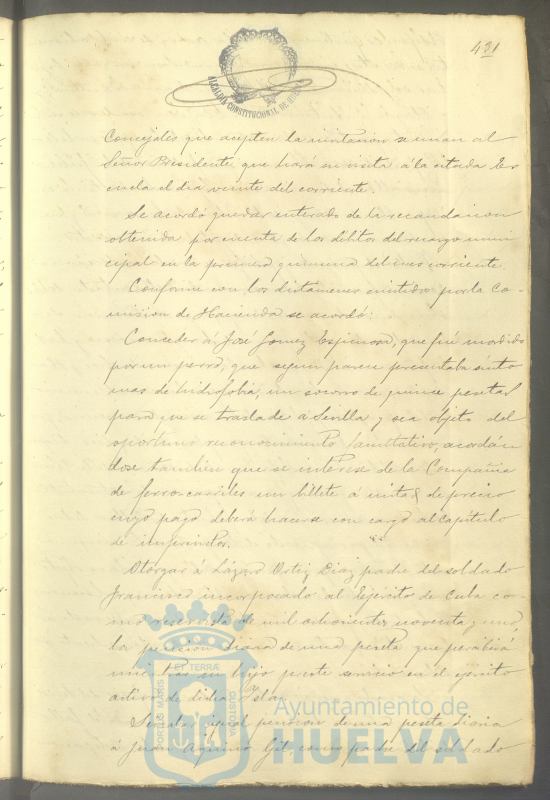 431
ALCALDIA CONSTITUCIONAL DE HUELVA
Concejales que acepten la invitacion se unan al
Señor Presidente que hará su visita á la citada Es
cuela el dia veinte del corriente.
Se acordó quedar enterado de la recaudacion
obtenida por cuenta de los débitos del recargo muni
cipal en la primera quincena del mes corriente.
Conforme con los dictamenes emitidos por la Co-
mision de Hacienda se acordó:
Conceder á José Gomez Espinosa, que fué mordido
por un perro, que segun parece presentaba sinto
mas de hidrofobia, un socorro de quince pesetas
para que se traslade á Sevilla y sea objeto del
oportuno reconocimiento facultativo, acordán
dose tambien que se interese de la Compañia
de ferro-carriles un billete á mitad de precio
cuyo pago deberá hacerse con cargo al Capítulo
de imprevistos.
Otorgar á Lázaro Ortiz Diaz, padre del soldado
Francisco incorporado al Ejército de Cuba co-
mo reservista de mil ochocientos noventa y uno,
la pension diaria de una peseta que percibirá
mientras su hijo preste servicio en el ejercito
activo de dicha Isla.
Señalar igual pension de una peseta diaria
á Juan Gil, como padre del soldado
PORTUS MARIS
ET TERRÆ
CUSTODIA
Ayuntamiento de
HUELVA